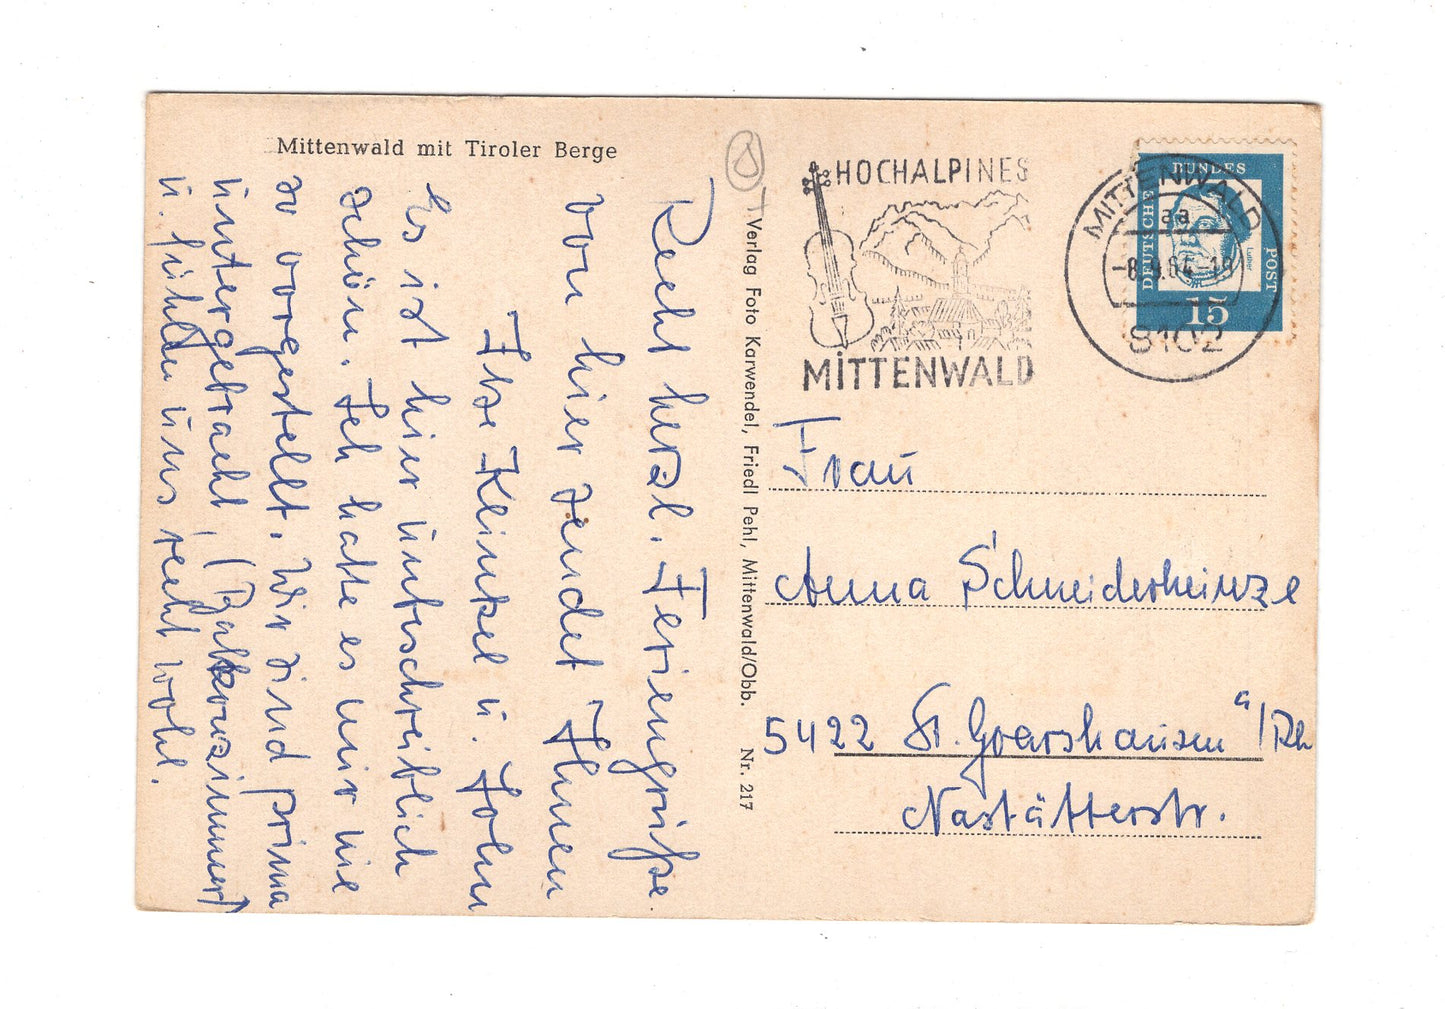 Mittenwald mit Tiroler Berge
Recht herzl. Feriengrüße
von hier sendet Ihnen
Ilse Keinzel u. John
Es ist hier unbeschreiblich
schön. Ich hatte es mir nie
so vorgestellt. Wir sind prima
untergebracht, (Balkonzimmer)
u. fühlen uns recht wohl.
Verlag Foto Karwendel, Friedl Pehl, Mittenwald/Obb. Nr. 217
HOCHALPINES
MITTENWALD
MITTENWALD
aa
-8.9.64-18
8102
DEUTSCHE BUNDES POST
Luther
15
Frau
Anna Schneiderheinze
5422 St. Goarshausen a/Rh
Nastätterstr.